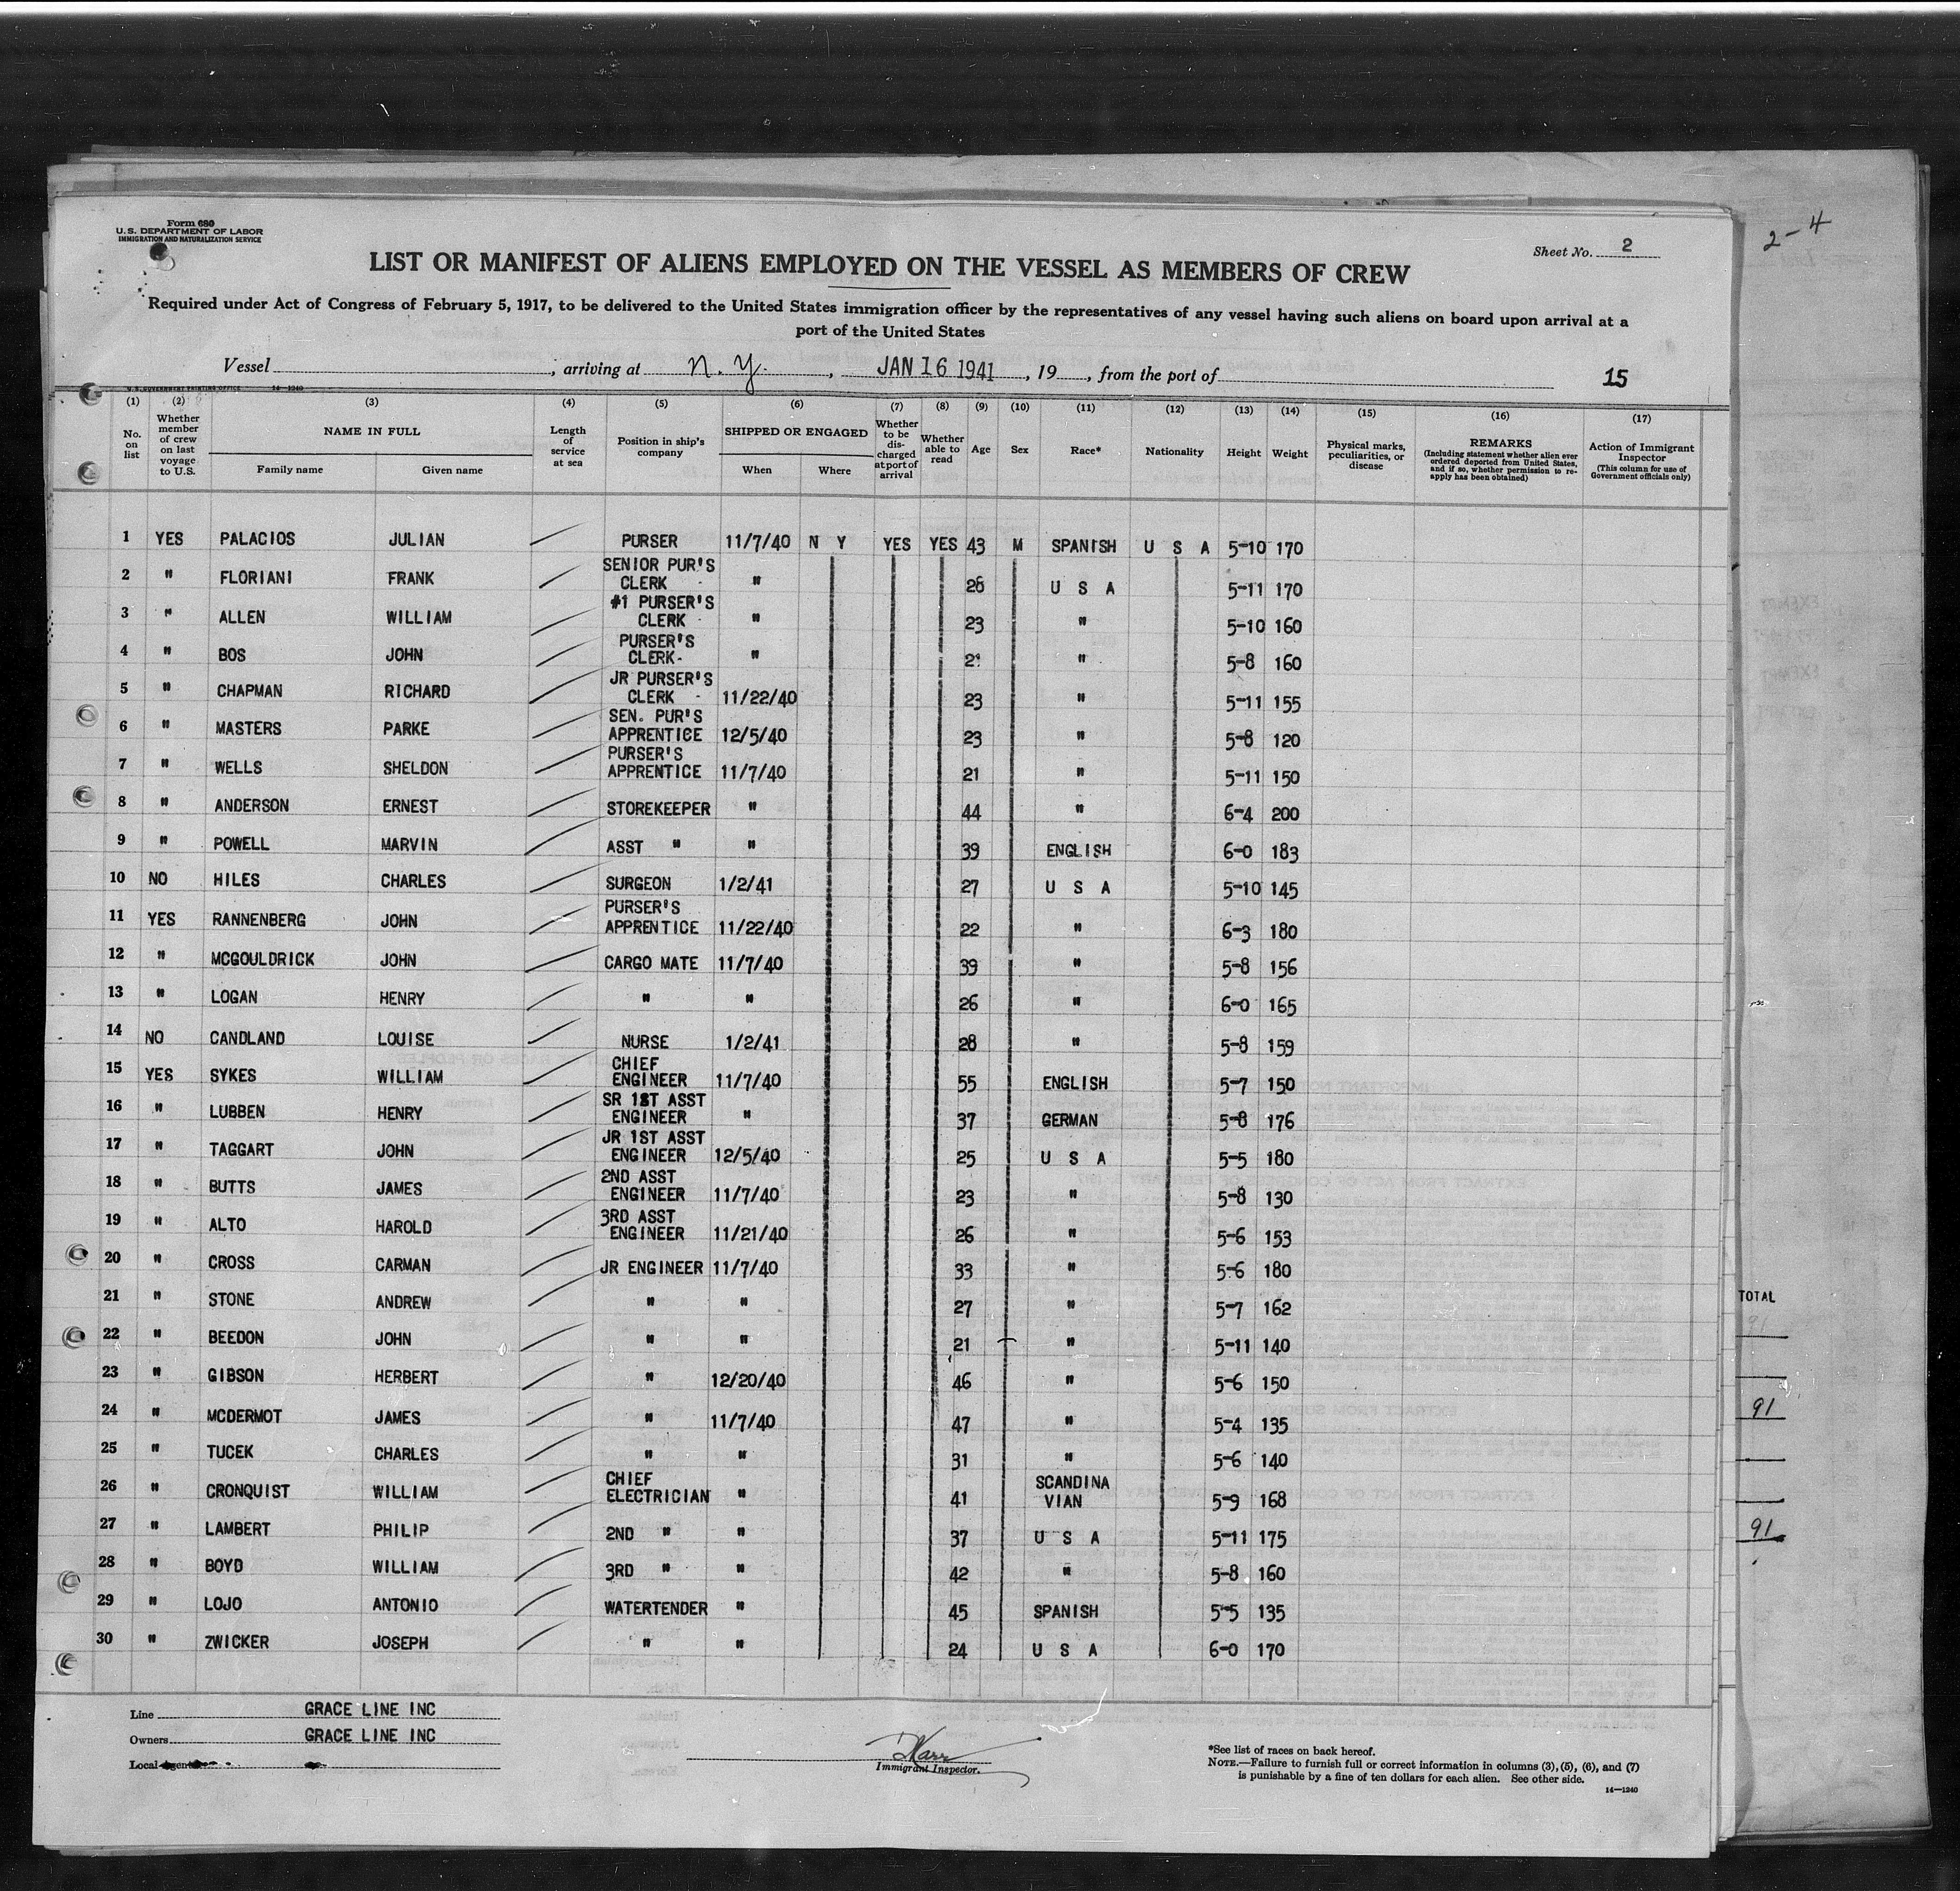 Form 680
U. S. DEPARTMENT OF LABOR
IMMIGRATION AND NATURALIZATION SERVICE
2-4
Sheet No. 2
LIST OR MANIFEST OF ALIENS EMPLOYED ON THE VESSEL AS MEMBERS OF CREW
Required under Act of Congress of February 5, 1917, to be delivered to the United States immigration officer by the representatives of any vessel having such aliens on board upon arrival at a
port of the United States
Vessel , arriving at N. Y. , JAN 16 1941 , 19 , from the port of
15
U. S. GOVERNMENT PRINTING OFFICE 14—1240
(1) (2) (3) (4) (5) (6) (7) (8) (9) (10) (11) (12) (13) (14) (15) (16) (17)
No. on list
Whether member of crew on last voyage to U.S.
NAME IN FULL
Family name Given name
Length of service at sea
Position in ship's company
SHIPPED OR ENGAGED
When Where
Whether to be discharged at port of arrival
Whether able to read
Age
Sex
Race*
Nationality
Height
Weight
Physical marks, peculiarities, or disease
REMARKS
(Including statement whether alien ever ordered deported from United States, and if so, whether permission to reapply has been obtained)
Action of Immigrant Inspector
(This column for use of Government officials only)
1 YES PALACIOS JULIAN PURSER 11/7/40 N Y YES YES 43 M SPANISH U S A 5-10 170
2 " FLORIANI FRANK SENIOR PUR'S CLERK - " 26 U S A 5-11 170
3 " ALLEN WILLIAM #1 PURSER'S CLERK - " 23 " 5-10 160
4 " BOS JOHN PURSER'S CLERK- " " 5-8 160
5 " CHAPMAN RICHARD JR PURSER'S CLERK - 11/22/40 23 " 5-11 155
6 " MASTERS PARKE SEN. PUR'S APPRENTICE 12/5/40 23 " 5-8 120
7 " WELLS SHELDON PURSER'S APPRENTICE 11/7/40 21 " 5-11 150
8 " ANDERSON ERNEST STOREKEEPER " 44 " 6-4 200
9 " POWELL MARVIN ASST " " 39 ENGLISH 6-0 183
10 NO HILES CHARLES SURGEON 1/2/41 27 U S A 5-10 145
11 YES RANNENBERG JOHN PURSER'S APPRENTICE 11/22/40 22 " 6-3 180
12 " MCGOULDRICK JOHN CARGO MATE 11/7/40 39 " 5-8 156
13 " LOGAN HENRY " " 26 " 6-0 165
14 NO CANDLAND LOUISE NURSE 1/2/41 28 " 5-8 159
15 YES SYKES WILLIAM CHIEF ENGINEER 11/7/40 55 ENGLISH 5-7 150
16 " LUBBEN HENRY SR 1ST ASST ENGINEER " 37 GERMAN 5-8 176
17 " TAGGART JOHN JR 1ST ASST ENGINEER 12/5/40 25 U S A 5-5 180
18 " BUTTS JAMES 2ND ASST ENGINEER 11/7/40 23 " 5-8 130
19 " ALTO HAROLD 3RD ASST ENGINEER 11/21/40 26 " 5-6 153
20 " CROSS CARMAN JR ENGINEER 11/7/40 33 " 5-6 180
21 " STONE ANDREW " " 27 " 5-7 162
22 " BEEDON JOHN " " 21 " 5-11 140
23 " GIBSON HERBERT " 12/20/40 46 " 5-6 150
24 " MCDERMOT JAMES " 11/7/40 47 " 5-4 135
25 " TUCEK CHARLES " " 31 " 5-6 140
26 " CRONQUIST WILLIAM CHIEF ELECTRICIAN " 41 SCANDINA VIAN 5-9 168
27 " LAMBERT PHILIP 2ND " " 37 U S A 5-11 175
28 " BOYD WILLIAM 3RD " " 42 " 5-8 160
29 " LOJO ANTONIO WATERTENDER " 45 SPANISH 5-5 135
30 " ZWICKER JOSEPH " " 24 U S A 6-0 170
TOTAL
91
91
91
Line GRACE LINE INC
Owners GRACE LINE INC
Local Agents
Immigrant Inspector.
*See list of races on back hereof.
NOTE.—Failure to furnish full or correct information in columns (3), (5), (6), and (7)
is punishable by a fine of ten dollars for each alien. See other side.
14—1240